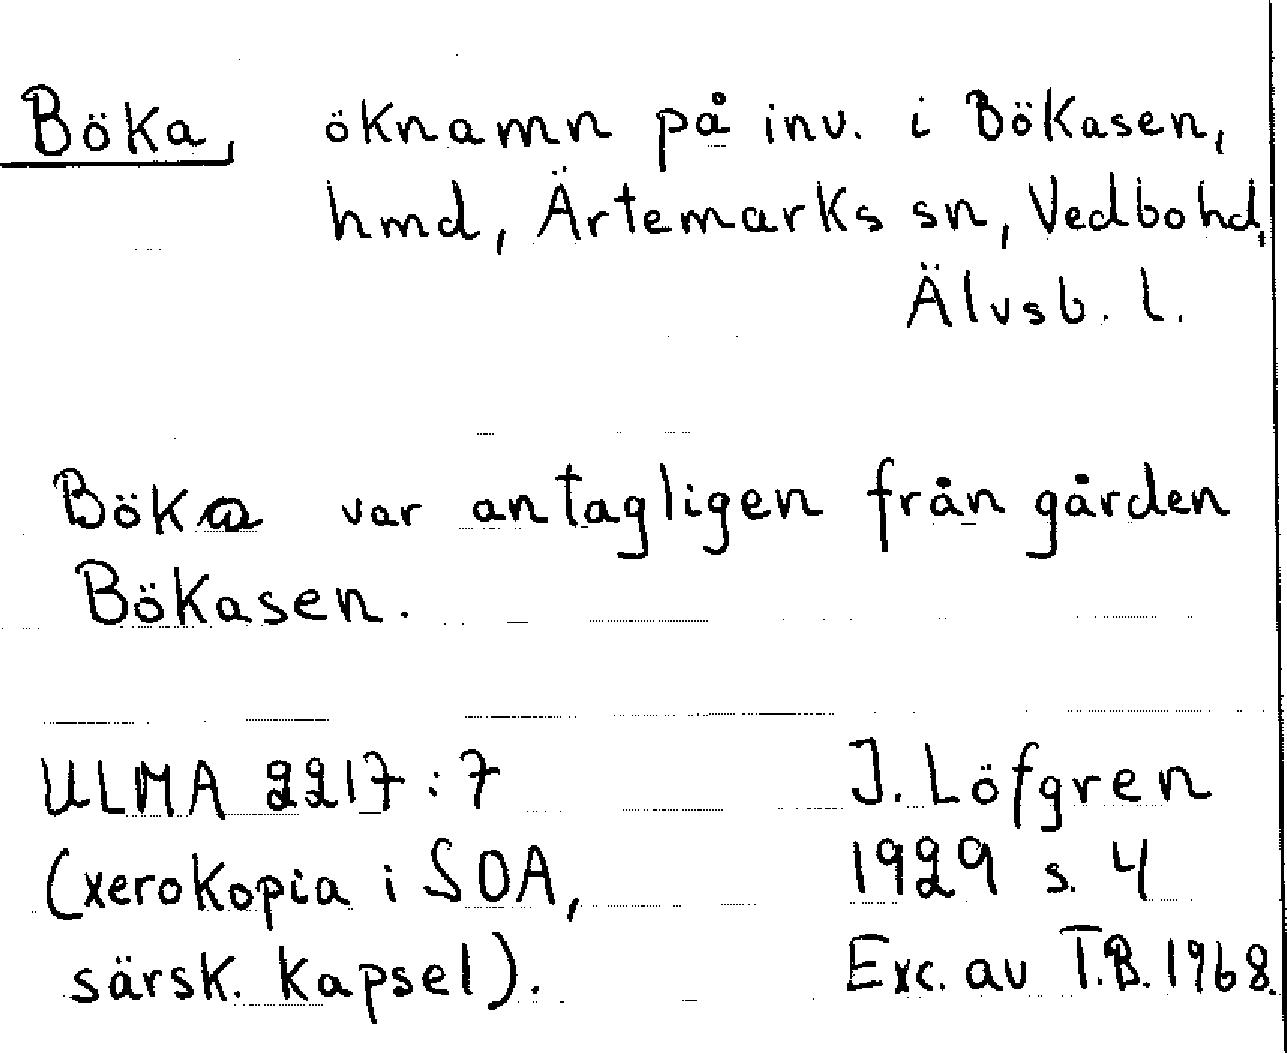 Böka, öknamn på inv. i Bökasen,
hmd, Ärtemarks sn, Vedbo hd,
Älvsb. l.
Böka var antagligen från gården
Bökasen.
ULMA 2217:7
(xerokopia i SOA,
särsk. kapsel).
J. Löfgren
1929 s. 4
Exc. av T.B. 1968.